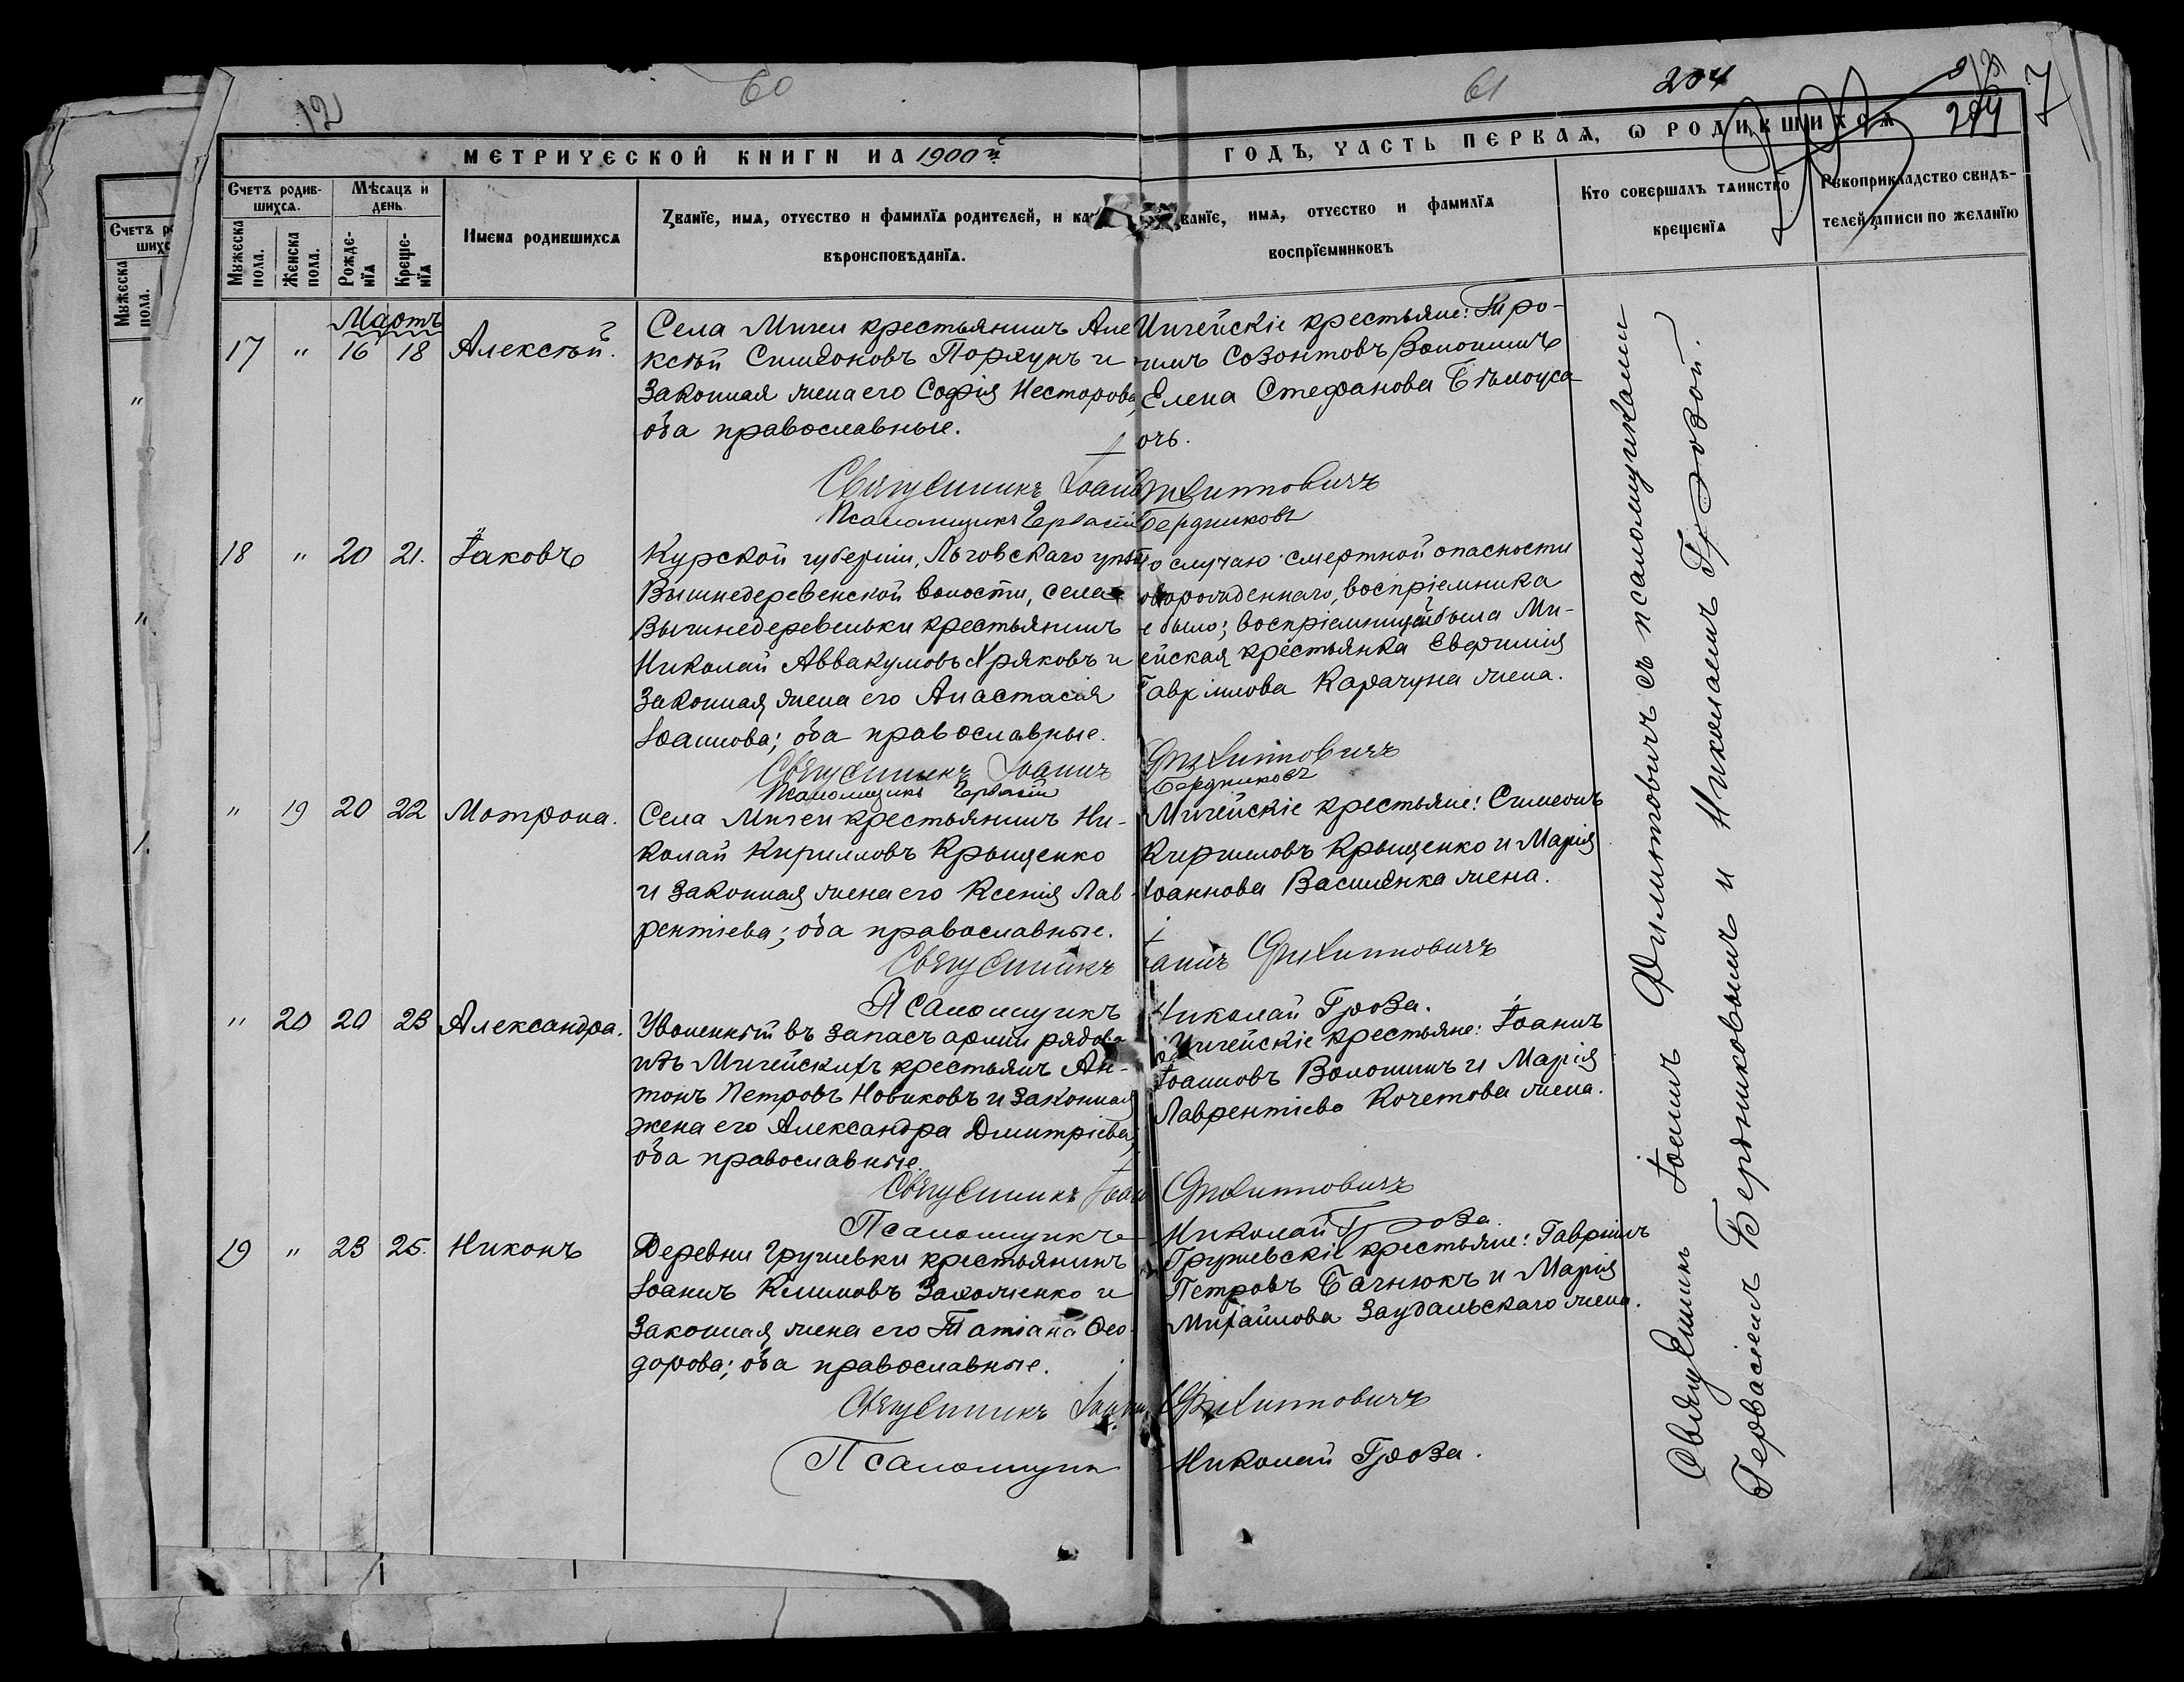 12
60
МЕТРИЧЕСКОЙ КНИГИ НА 1900й
Счетъ родив-
шихся.
Мѣсяцъ и
день
Мужеска
пола.
Женска
пола.
Рожде-
нія
Креще-
нія
Имена родившихся
Званіе, имя, отчество и фамилія родителей, и
вѣроисповѣданія.
Мартъ
17 " 16 18 Алексѣй.
Села Мигеи крестьянинъ Але
ксѣй Симеоновъ Порхунъ и
законная жена его Софія Несторова,
оба православные.
Священникъ Іоаннъ
Псаломщикъ Гервасій
18 " 20 21. Іаковъ
Курской губерніи, Льговскаго уѣзда
Вышнедеревенской волости, села
Вышнедеревеньки крестьянинъ
Николай Аввакумовъ Хряковъ и
законная жена его Анастасія
Іоаннова; оба православные.
Священникъ Іоаннъ
Псаломщикъ Гервасій
" 19 20 22 Мотрона.
Села Мигеи крестьянинъ Ни-
колай Кирилловъ Крыщенко
и законная жена его Ксенія Лав-
рентіева; оба православные.
Священникъ
Псаломщикъ
" 20 20 23 Александра.
Уволенный въ запасъ арміи рядовой
изъ Мигейскихъ крестьянъ Ан-
тонъ Петровъ Новиковъ и законная
жена его Александра Дмитріева;
оба православные.
Священникъ Іоаннъ
Псаломщикъ
19 " 23 25. Никонъ
Деревни Грушевки крестьянинъ
Іоаннъ Климовъ Захожіенко и
законная жена его Татіана Ѳео-
дорова; оба православные.
Священникъ Іоаннъ
Псаломщикъ
61
204
ГОДЪ, ЧАСТЬ ПЕРВАЯ, О РОДИВШИХСЯ
Званіе, имя, отчество и фамилія
воспріемниковъ
Кто совершалъ таинство
крещенія
Рукоприкладство свидѣ-
телей записи по желанію
Мигейскіе крестьяне: Тро-
химъ Созонтовъ Волошинъ
Елена Стефанова Бѣлоуса
дочь.
Филиповичъ
Бердниковъ
По случаю смертной опасности
новорожденнаго, воспріемника
не было; воспріемницей была Ми-
гейская крестьянка Евфимія
Гавріилова Карачуна жена.
Филиповичъ
Бердниковъ
Мигейскіе крестьяне: Симеонъ
Кирилловъ Крыщенко и Марія
Іоаннова Василенка жена.
Іоаннъ Филиповичъ
Николай Гроза.
Мигейскіе крестьяне: Іоаннъ
Іоанновъ Волошинъ и Марія
Лаврентіева Кочетова жена.
Филиповичъ
Николай Гроза.
Грушевскіе крестьяне: Гавріилъ
Петровъ Багнюкъ и Марія
Михайлова Заудальскаго жена.
Филиповичъ
Николай Гроза.
Священникъ Іоаннъ Филиповичъ съ псаломщиками
Гервасіемъ Бердниковымъ и Николаемъ Грозой.
Счетъ
шихс
Мужеска
пола.
"
"
1.